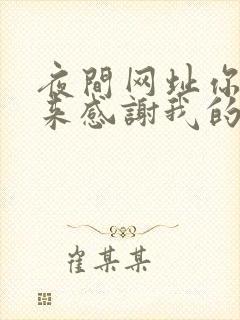 夜間网址你
来感謝我的
崔某某